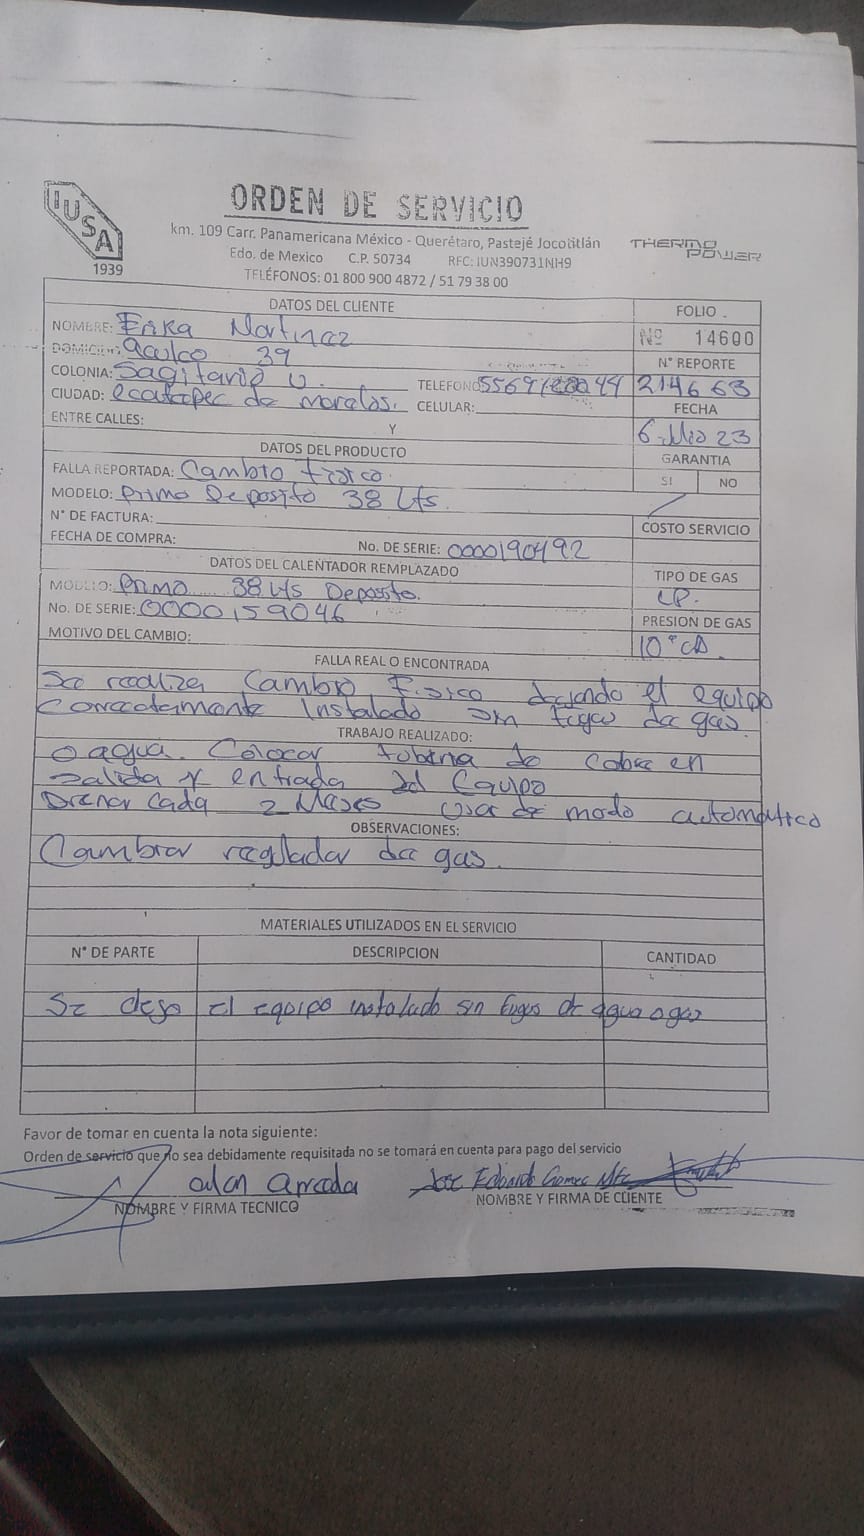 IUSA
1939
ORDEN DE SERVICIO
km. 109 Carr. Panamericana México - Querétaro, Pastejé Jocotitlán
Edo. de Mexico C.P. 50734 RFC: IUN390731NH9
TELÉFONOS: 01 800 900 4872 / 51 79 38 00
THERMO POWER
DATOS DEL CLIENTE
FOLIO
NOMBRE: Erika Martinez
Nº 14600
DOMICILIO: Aculco 39
Nº REPORTE
COLONIA: Sagitario V.
TELEFONO
214663
CIUDAD: ecatepec de morelos. CELULAR:
FECHA
ENTRE CALLES: Y
6 Mzo 23
DATOS DEL PRODUCTO
GARANTIA
FALLA REPORTADA: Cambio fisico.
SI NO
MODELO: Primo Deposito 38 Lts.
N° DE FACTURA:
COSTO SERVICIO
FECHA DE COMPRA: No. DE SERIE: 0000190492
DATOS DEL CALENTADOR REMPLAZADO
TIPO DE GAS
MODELO: Primo 38 Lts Deposito.
LP.
No. DE SERIE: 0000159046
PRESION DE GAS
MOTIVO DEL CAMBIO:
FALLA REAL O ENCONTRADA
Se realiza Cambio Fisico dejando el equipo
Correctamente Instalado sin fugas de gas.
TRABAJO REALIZADO:
o agua. Colocar tuberia de cobre en
salida y entrada del Equipo
Drenar cada 2 Meses usar de modo automático
OBSERVACIONES:
Cambiar regulador de gas.
MATERIALES UTILIZADOS EN EL SERVICIO
N° DE PARTE DESCRIPCION CANTIDAD
Se dejo el equipo instalado sin fugas de agua o gas
Favor de tomar en cuenta la nota siguiente:
Orden de servicio que no sea debidamente requisitada no se tomará en cuenta para pago del servicio
Jose Eduardo Gomez
NOMBRE Y FIRMA TECNICO
NOMBRE Y FIRMA DE CLIENTE